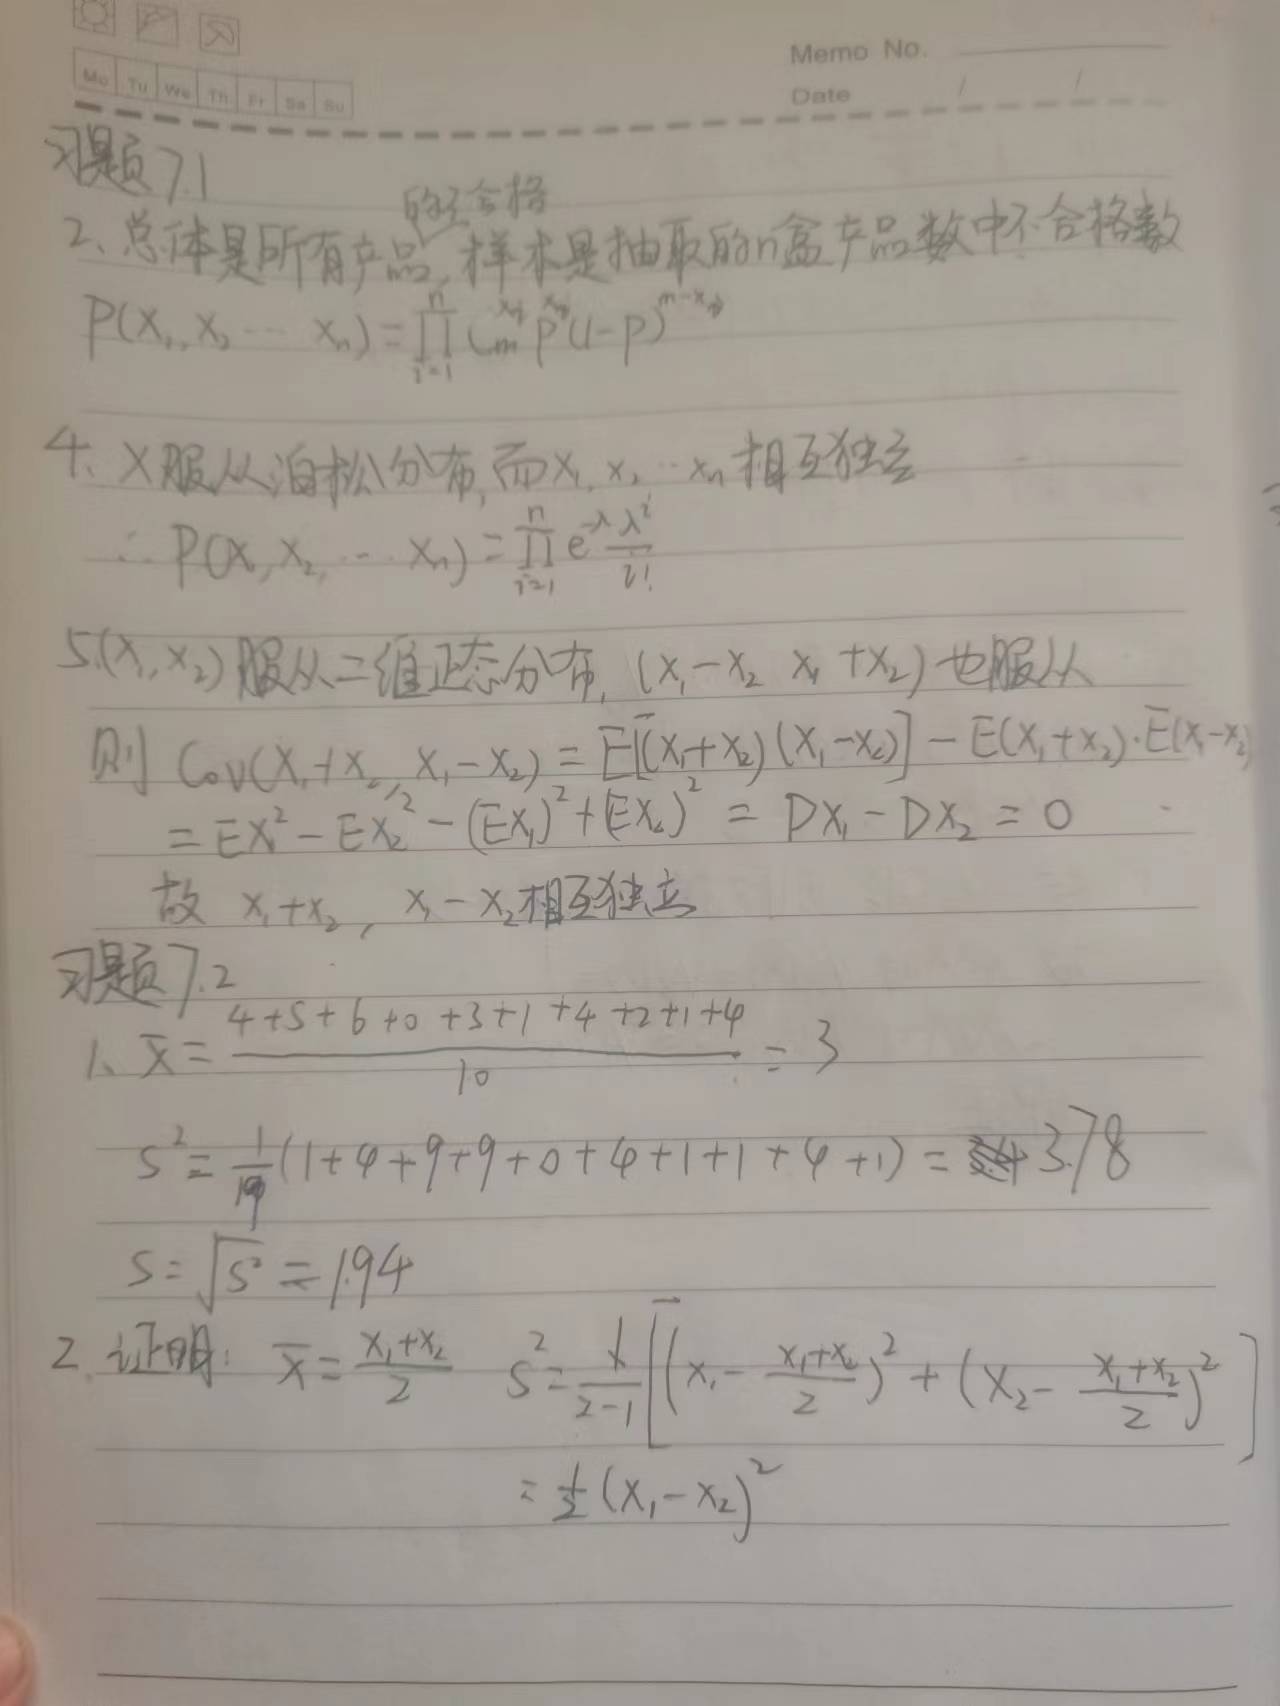 Memo No.
Date / /
Mo Tu We Th Fr Sa Su
习题7.1
的不合格
2、总体是所有产品,样本是抽取的n盒产品数中不合格数
P(X₁, X₂ ⋯ Xₙ) = ∏ᵢ₌₁ⁿ Cₘ^xᵢ p^xᵢ (1-p)^(m-xᵢ)
4、X服从泊松分布,而X₁, X₂ ⋯ Xₙ相互独立
∴ P(X₁, X₂, ⋯ Xₙ) = ∏ᵢ₌₁ⁿ e^(-λ) λ^i / i!
5.(X₁, X₂)服从二维正态分布, (X₁-X₂ X₁+X₂)也服从
则 Cov(X₁+X₂, X₁-X₂) = E[(X₁+X₂)(X₁-X₂)] - E(X₁+X₂)·E(X₁-X₂)
= EX₁² - EX₂² - (EX₁)² + (EX₂)² = DX₁ - DX₂ = 0
故 X₁+X₂, X₁-X₂相互独立
习题7.2
1、X̄ = (4+5+6+0+3+1+4+2+1+4)/10 = 3
S² = 1/9 (1+4+9+9+0+4+1+1+4+1) = 3.78
S = √S² = 1.94
2. 证明: X̄ = (X₁+X₂)/2 S² = 1/(2-1) [(X₁ - (X₁+X₂)/2)² + (X₂ - (X₁+X₂)/2)²]
= ½ (X₁-X₂)²